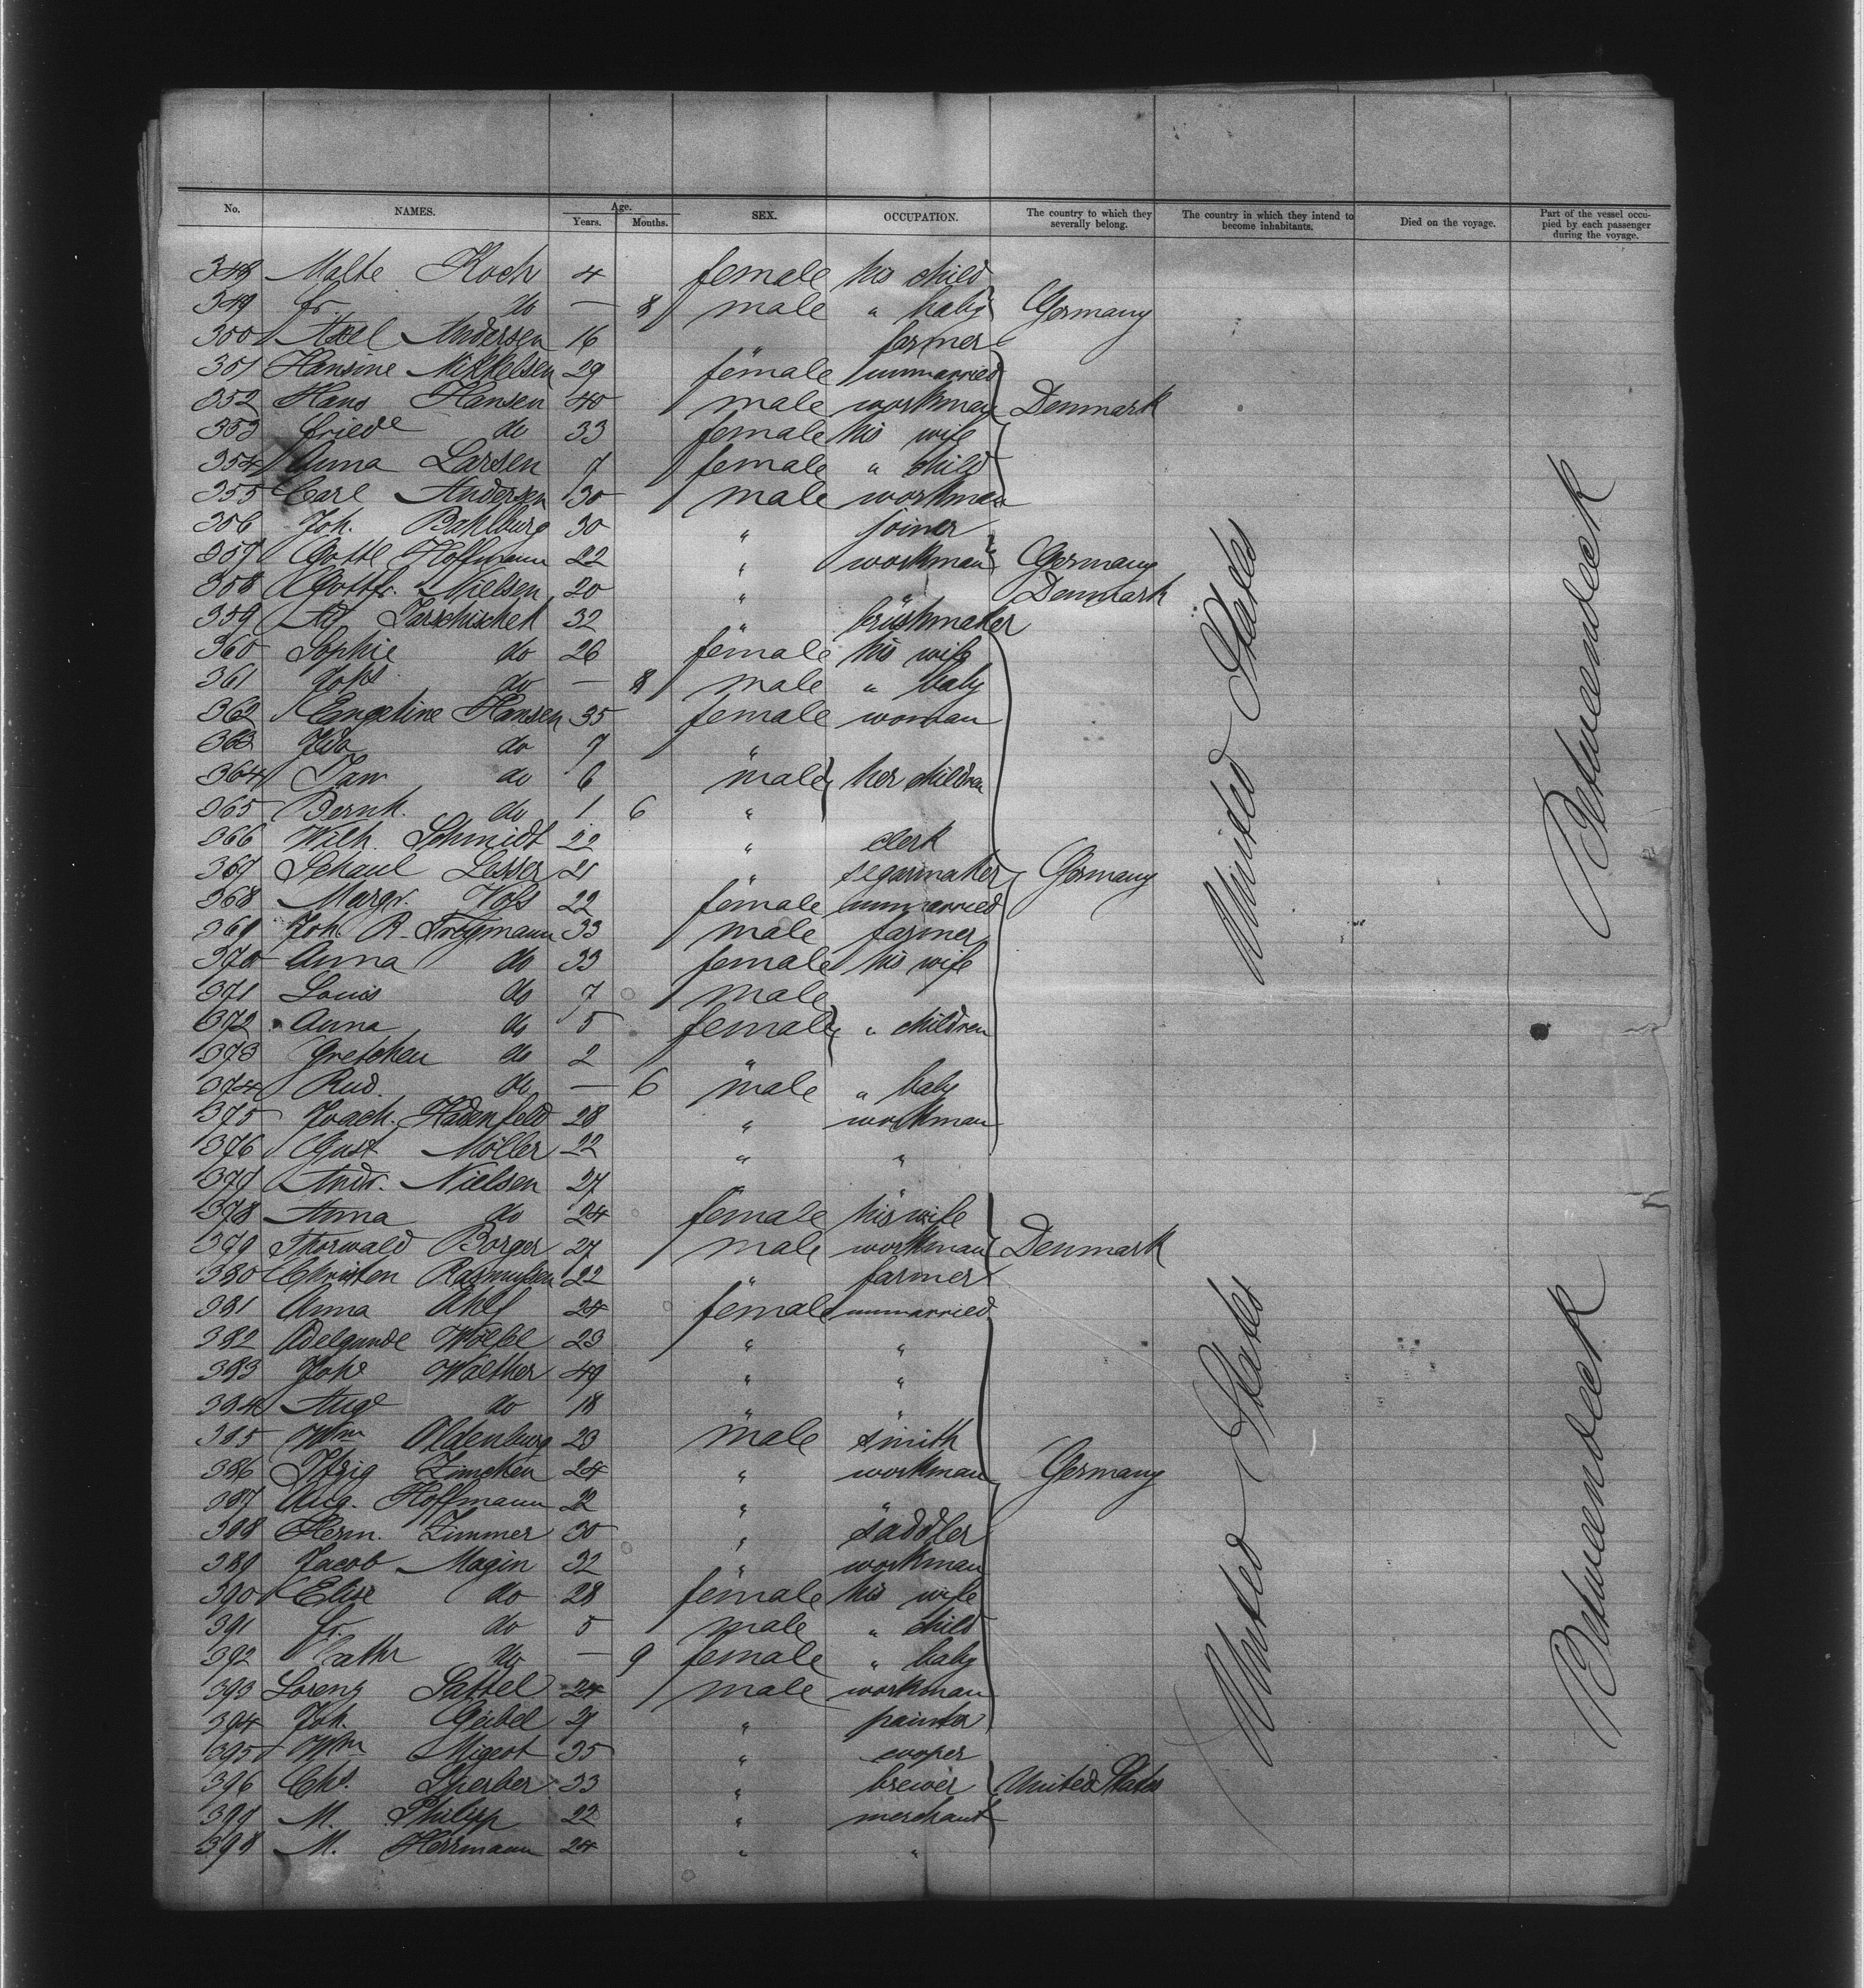 No. NAMES. Age. Years. Months. SEX. OCCUPATION. The country to which they severally belong. The country in which they intend to become inhabitants. Died on the voyage. Part of the vessel occupied by each passenger during the voyage.
348 Malte Koch 4 female his child
349 Fr. do — 8 male " baby Germany
350 Axel Andersen 16 " farmer
351 Hansine Mikkelsen 29 female unmarried
352 Hans Hansen 40 male workman Denmark
353 Friede do 33 female his wife
354 Anna Larsen 7 female " child
355 Carl Andersen 30 male workman
356 Joh. Bahlburg 30 " joiner
357 Gottl Hoffmann 22 " workman Germany
358 Gottfr. Nielsen 20 " " Denmark
359 Ad Tarschischek 32 " brüshmaker
360 Sophie do 26 female his wife
361 Johs do — 8 male " baby
362 Engeline Hansen 35 female woman
363 Ida do 7 "
364 do 6 male her children
365 Bernh. do 1 6 "
366 Wilh. Schmidt 22 " clerk
367 Schaul Lesser 21 " segarmaker Germany
368 Margr. Voss 22 female unmarried
369 Joh. R. 33 male farmer
370 Anna do 33 female his wife
371 Louis do 7 male
372 Anna do 5 female " children
373 Gretchen do 2 "
374 Rud. do — 6 male " baby
375 Joach. Hadenfeld 28 " workman
376 Gust Möller 22 " "
377 Andr. Nielsen 27 " "
378 Anna do 24 female his wife
379 Thorwald Borger 27 male workman Denmark
380 Christen Rasmussen 22 " farmer
381 Anna Ahlf 24 female unmarried
382 Adelgunde Wölfel 23 " "
383 Johe Walther 49 " "
384 Auge do 18 " "
385 Wm Oldenburg 23 male smith
386 Zimcken 24 " workman Germany
387 Aug. Hoffmann 22 " "
388 Herm. Zimmer 30 " saddler
389 Jacob Magin 32 " workman
390 Elise do 28 female his wife
391 Fr. do 5 male " child
392 Cathr do — 9 female " baby
393 Lorenz Sattel 24 male workman
394 Joh. Geibel 21 " painter
395 Wm Migeot 35 " cooper
396 Chs. Sperber 33 " brewer United States
397 M. Philipp 22 " merchant
398 M. Herrmann 24 " "
United States
Betweendeck
United States
Betweendeck